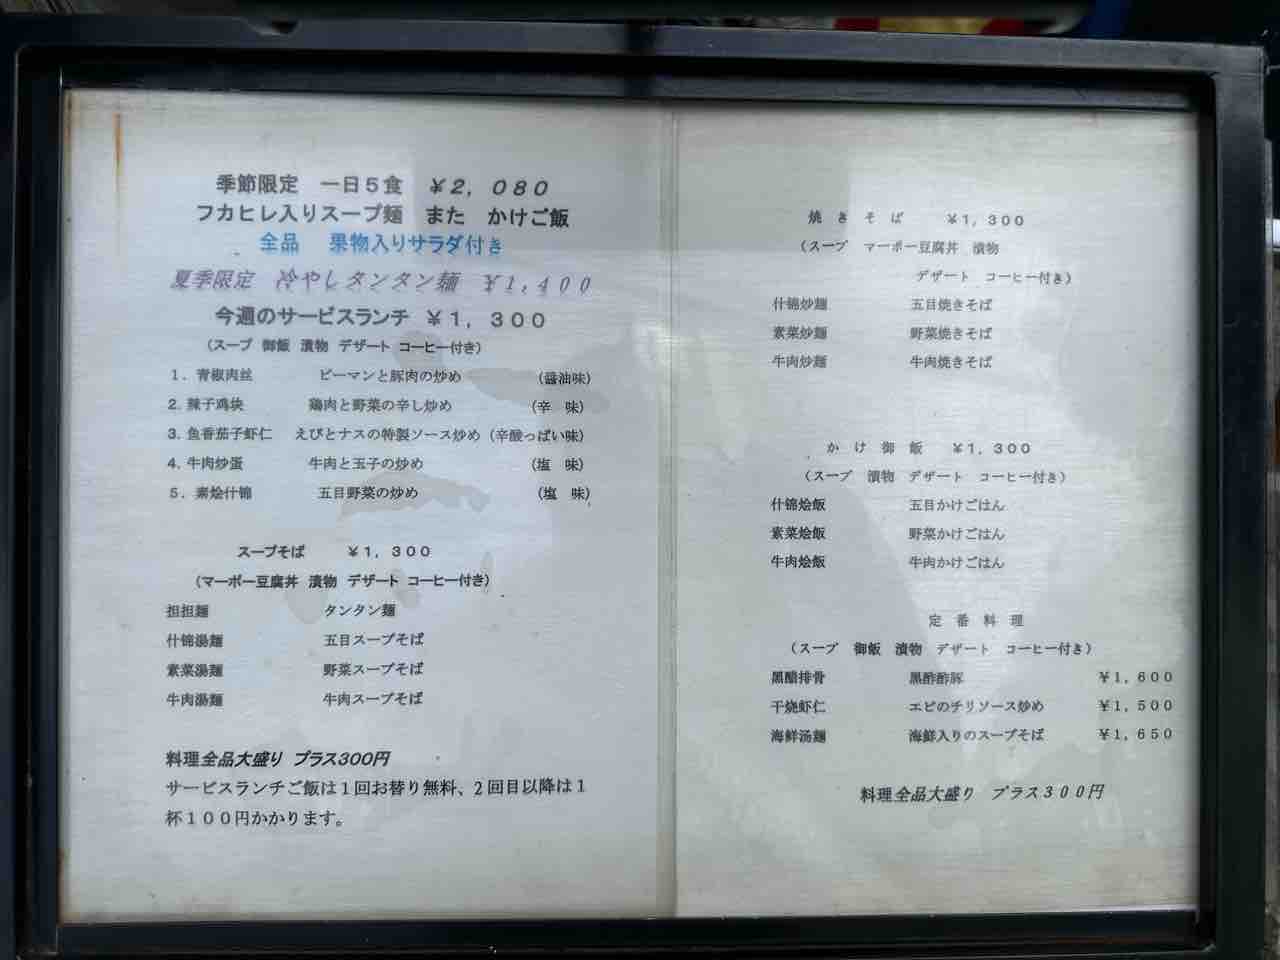 季節限定 一日５食 ￥２，０８０
フカヒレ入りスープ麺 また かけご飯
全品 果物入りサラダ付き
夏季限定 冷やしタンタン麺 ￥１,４００
今週のサービスランチ ￥１，３００
（スープ 御飯 漬物 デザート コーヒー付き）
１．青椒肉丝 ピーマンと豚肉の炒め （醤油味）
２. 辣子鸡块 鶏肉と野菜の辛し炒め （辛 味）
３. 鱼香茄子虾仁 えびとナスの特製ソース炒め （辛酸っぱい味）
４. 牛肉炒蛋 牛肉と玉子の炒め （塩 味）
５．素烩什锦 五目野菜の炒め （塩 味）
スープそば ￥１，３００
（マーボー豆腐丼 漬物 デザート コーヒー付き）
担担麺 タンタン麺
什锦湯麺 五目スープそば
素菜湯麺 野菜スープそば
牛肉湯麺 牛肉スープそば
料理全品大盛り プラス300円
サービスランチご飯は１回お替り無料、２回目以降は１
杯１００円かかります。
焼 き そ ば ￥１，３００
（スープ マーボー豆腐丼 漬物
デザート コーヒー付き）
什锦炒麺 五目焼きそば
素菜炒麺 野菜焼きそば
牛肉炒麺 牛肉焼きそば
か け 御 飯 ￥１，３００
（スープ 漬物 デザート コーヒー付き）
什锦烩飯 五目かけごはん
素菜烩飯 野菜かけごはん
牛肉烩飯 牛肉かけごはん
定 番 料 理
（スープ 御飯 漬物 デザート コーヒー付き）
黒醋排骨 黒酢酢豚 ￥１，６００
干烧虾仁 エビのチリソース炒め ￥１，５００
海鮮汤麺 海鮮入りのスープそば ￥１，６５０
料理全品大盛り プラス３００円